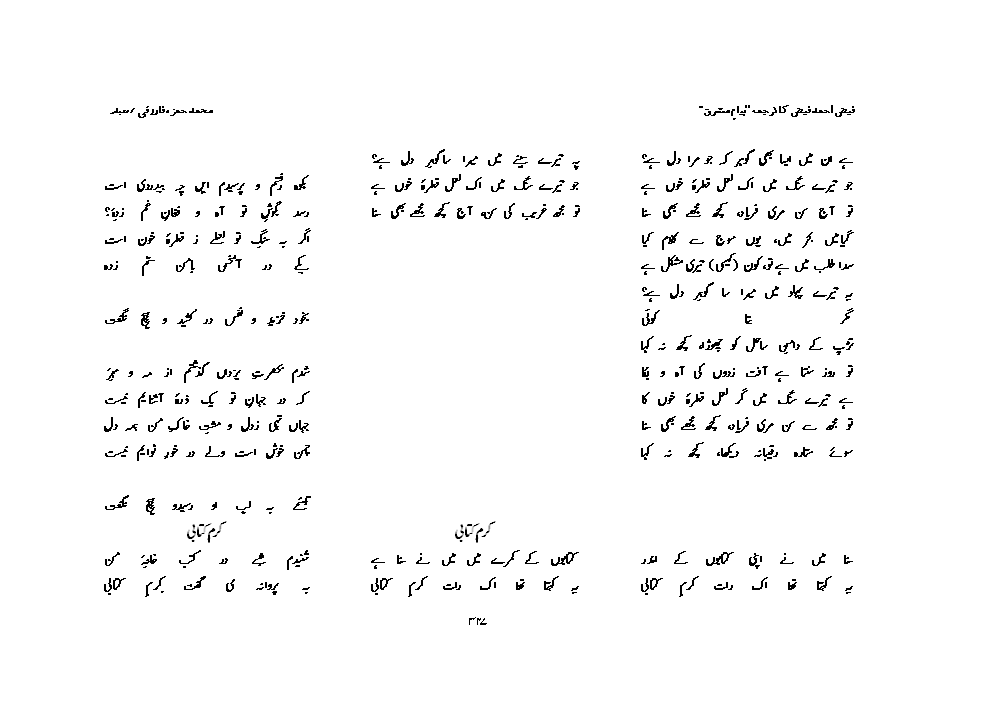 فیض احمد فیض کا ترجمہ "پیامِ مشرق"
محمد حمزہ فاروقی / معیار
ہے ان میں ایسا بھی گوہر کہ جو مرا دل ہے؟
جو تیرے سنگ میں اک لعل قطرۂ خوں ہے
تو آج سن مری فریاد، کچھ مجھے بھی سنا
گیا میں بحر میں، یوں موج سے کلام کیا
سدا طلب میں ہے تو، کون (کیسی) تیری مشکل ہے
یہ تیرے پہلو میں میرا سا گوہر دل ہے؟
مگر بتا کوئی
تڑپ کے دامنِ ساحل کو چھوڑا، کچھ نہ کہا
تو روز سنتا ہے آفت زدوں کی آہ و بکا
ہے تیرے سنگ میں گر لعل قطرۂ خوں کا
تو مجھ سے سن مری فریاد، کچھ مجھے بھی سنا
سوئے ستارہ رقیبانہ دیکھا، کچھ نہ کہا
سنا میں نے اپنی کتابوں کے اندر
یہ کہتا تھا اک رات کرمِ کتابی
یہ تیرے سینے میں میرا سا گوہر دل ہے؟
جو تیرے سنگ میں اک لعل قطرۂ خوں ہے
تو مجھ غریب کی سن، آج کچھ مجھے بھی سنا
کرم کتابی
کتابوں کے کمرے میں میں نے سنا ہے
یہ کہتا تھا اک رات کرمِ کتابی
بکوہ رفتم و پرسیدم ایں چہ بیدردی است
رسد بگوشِ تو آہ و فغانِ غم زدۂ؟
اگر بہ سنگِ تو لعلے ز قطرۂ خون است
یکے در آ بسخن با من ستم زدہ
بخود خزید و نفس در کشید و ہیچ نگفت
شدم بحضرتِ یزداں گذشتم از مہ و مہر
کہ در جہانِ تو یک ذرۂ آشنایم نیست
جہاں تہی ز دل و مشتِ خاکِ من ہمہ دل
چمن خوش است ولے در خورِ نوایم نیست
تبسمے بہ لب او رسیدو ہیچ نگفت
کرم کتابی
شنیدم شبے در کتب خانۂ من
بہ پروانہ می گفت کرمِ کتابی
۳۲۷